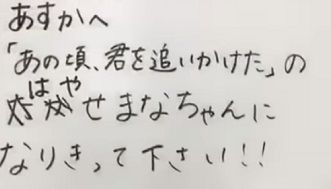 あすかへ
「あの頃、君を追いかけた」の
はや
せまなちゃんに
なりきって下さい!!